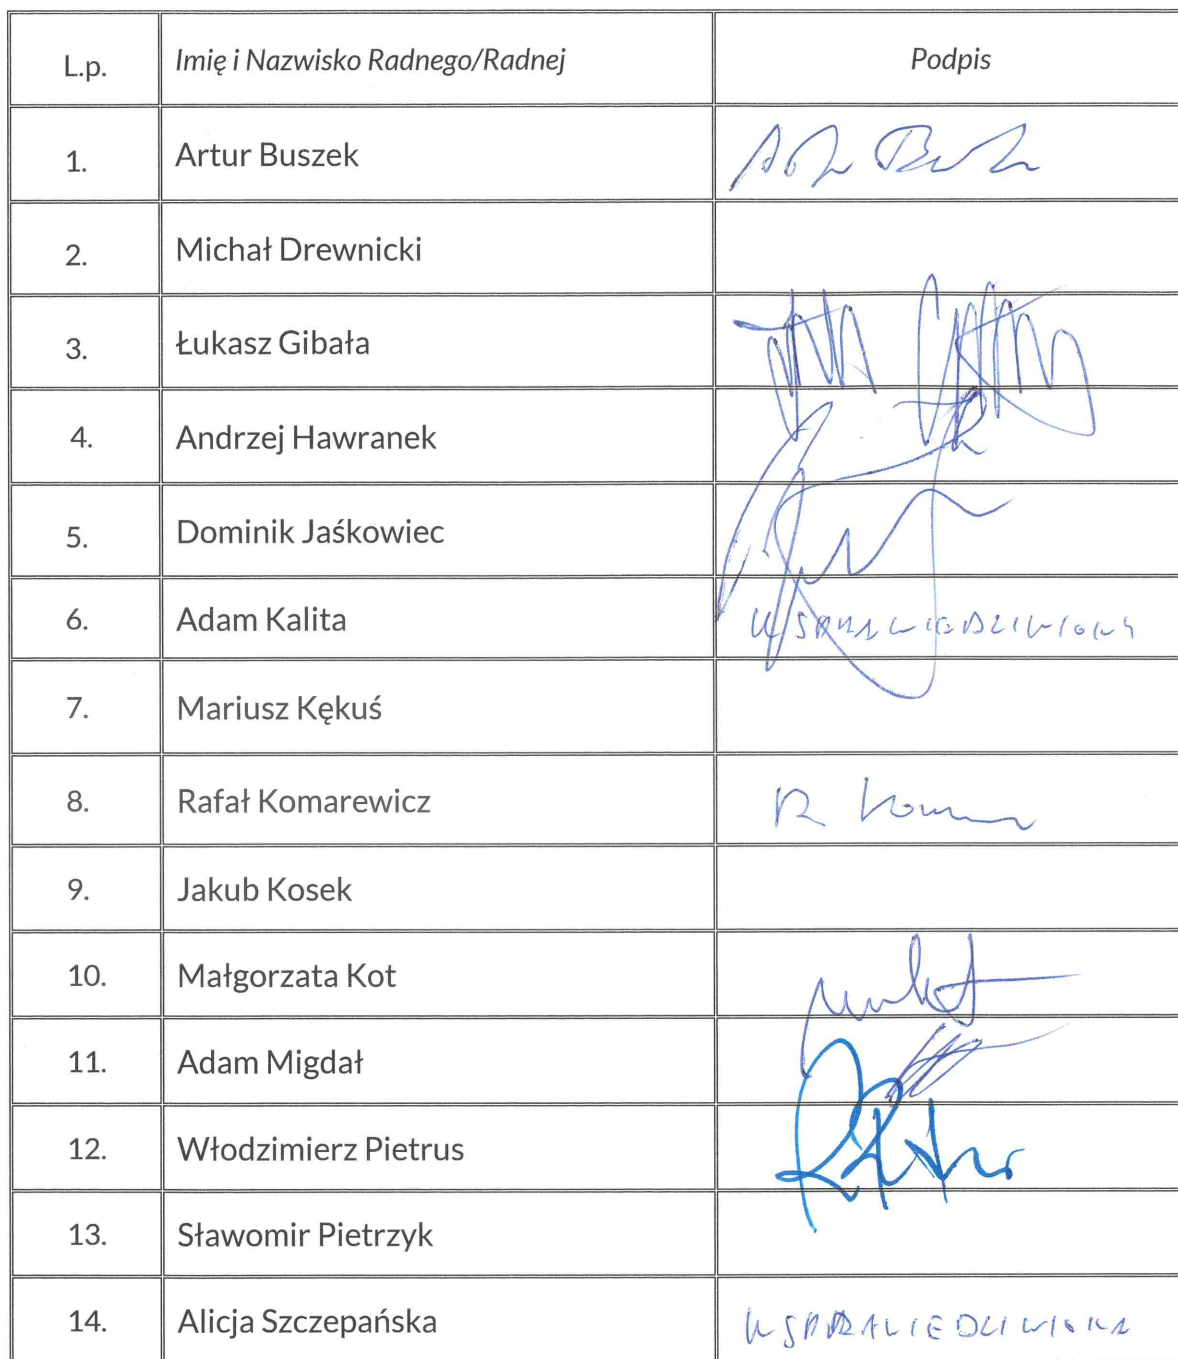 L.p. Imię i Nazwisko Radnego/Radnej Podpis
1. Artur Buszek
2. Michał Drewnicki
3. Łukasz Gibała
4. Andrzej Hawranek
5. Dominik Jaśkowiec
6. Adam Kalita USPRAWIEDLIWIONY
7. Mariusz Kękuś
8. Rafał Komarewicz
9. Jakub Kosek
10. Małgorzata Kot
11. Adam Migdał
12. Włodzimierz Pietrus
13. Sławomir Pietrzyk
14. Alicja Szczepańska USPRAWIEDLIWIONA